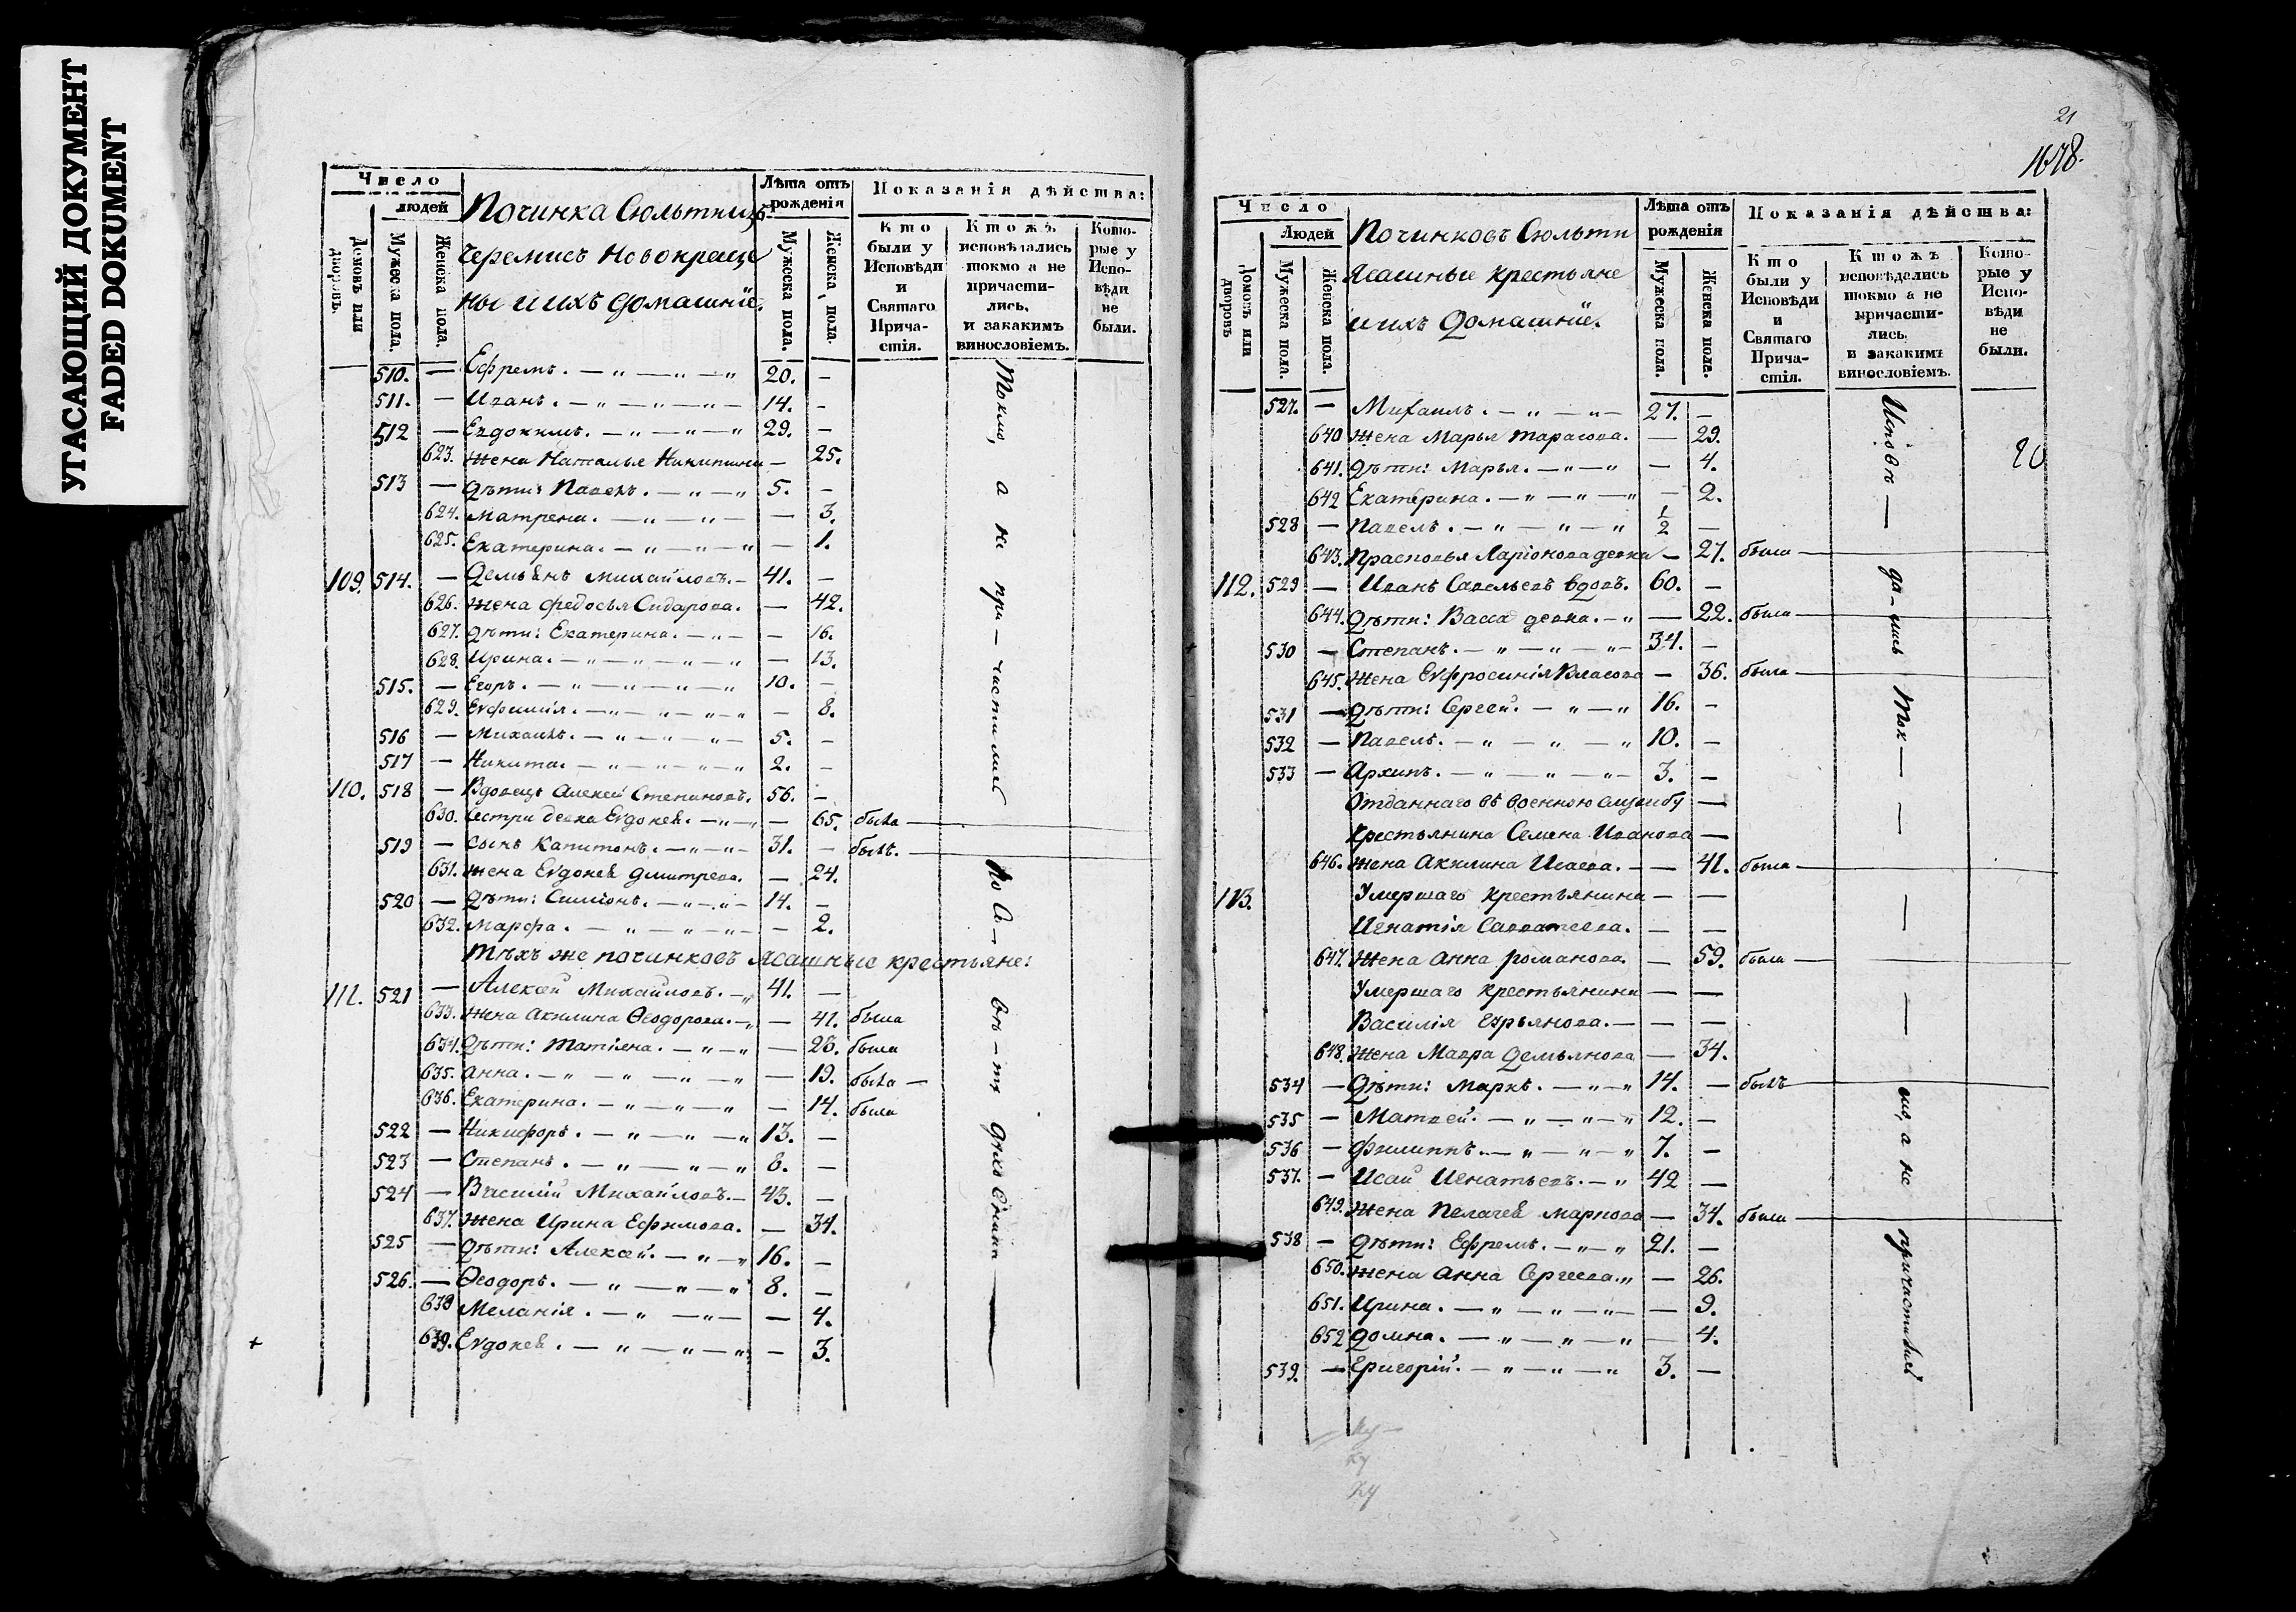 УГАСАЮЩИЙ ДОКУМЕНТ
FADED DOCUMENT
Число
людей
Домовъ или дворовъ.
Мужеска пола.
Женска пола.
Починка Сюльтинц
Черемисъ Новокреще
ны и ихъ домашніе.
Лѣта отъ рожденія
Мужеска пола.
Женска пола.
Показанія дѣйства:
Кто были у Исповѣди и Святаго Прича- стія.
Ктожъ исповѣдались токмо а не причасти- лись, и закакимъ винословіемъ.
Кото- рые у Испо- вѣди не были.
510. — Ефремъ. — „ — „ — „ 20. —
511. — Иванъ. — „ — „ — „ — 14. —
512 — Евдокимъ. — „ — „ — „ 29. —
623. Жена Наталья Никитина — 25.
513 — Дѣти: Павелъ. — „ — „ 5. —
624. Матрена. — „ — „ — — 3.
625. Екатерина. — „ — „ — „ — 1.
109. 514. — Демьянъ Михайловъ. — 41. —
626. Жена Федосья Сидарова. — 42.
627. Дѣти: Екатерина. — „ — — 16.
628. Ирина. — „ — „ — „ — „ — 13.
515. — Егоръ. — „ — „ — „ — „ 10. —
629. Евфимія. — „ — „ — „ — „ — 8.
516 — Михаилъ. — „ — „ — „ — 5. —
517 — Никита. — „ — „ — „ — „ 2. —
110. 518 — Вдовецъ Алексей Степановъ. 56. —
630. Сестра девка Евдокея. — „ — „ — 65. была —
519 — Сынъ Капитонъ. — „ — „ — 31. — былъ. —
631. Жена Евдокея Дмитрева. — 24.
520 — Дѣти: Симіонъ. — „ — „ — 14. —
632. Марфа. — „ — „ — „ — — 2.
Тѣхъ же починковъ Ясашные крестьяне:
111. 521 — Алексей Михайловъ. — „ 41. —
633. Жена Акилина Ѳеодорова. — „ — 41. была
634. Дѣти: Татіяна. — „ — „ — 23. была
635. Анна. — „ — „ — „ — „ — 19. была —
636. Екатерина. — „ — „ — „ — 14. была
522 — Никифоръ. — „ — „ — „ 13. —
523 — Степанъ. — „ — „ — „ 8. —
524 — Василій Михайловъ. — 43. —
637. Жена Ирина Ефимова. — 34.
525 — Дѣти: Алексей. — „ — „ 16. —
526. — Ѳеодоръ. — „ — „ — „ 8. —
638 Меланія. — „ — „ — — 4.
639. Евдокея. — „ — „ — „ — 3.
Токмо, а не при — частились
по А — въ — ту
21
1678.
Число
Людей
Домовъ или дворовъ
Мужеска пола.
Женска пола.
Починковъ Сюльти
Ясашные крестьяне
и ихъ домашніе.
Лѣта отъ рожденія
Мужеска пола.
Женска пола.
Показанія дѣйства:
Кто были у Исповѣди и Святаго Прича- стія.
Ктожъ исповѣдались токмо а не причасти- лись, и закакимъ винословіемъ.
Кото- рые у Испо- вѣди не были.
527. — Михаилъ. — „ — „ — 27. —
640 Жена Марья Тарасова. — 29.
20
641. Дѣти: Марья. — „ — „ — 4.
642 Екатерина. — „ — „ — „ — 2.
528 — Павелъ. — „ — „ — „ 1/2 —
643. Прасковья Ларіонова девка — 27. была —
112. 529 — Иванъ Савельевъ вдовъ. 60. —
644. Дѣти: Васса девка. — „ — 22. была —
530 — Степанъ. — „ — „ — „ — 34. —
645. Жена Евфросинія Власова — 36. была —
531 — Дѣти: Сергей. — „ — „ 16. —
532 — Павелъ. — „ — „ — „ 10. —
533 — Архипъ. — „ — „ — „ — 3. —
Отданнаго въ военною службу —
Крестьянина Семена Иванова —
646. Жена Акилина Исаева. — — 41. была —
113. Умершаго крестьянина — —
Игнатія Савватеева. — —
647. Жена Анна Романова. — 59. была —
Умершаго крестьянина — —
Василія Евръянова. — — —
648. Жена Мавра Демьянова — 34.
534 — Дѣти: Маркъ. — „ — „ 14. — былъ —
535 — Матвей. — „ — „ — „ — 12. —
536 — Филиппъ. — „ — „ — „ 7. —
537. — Исай Игнатьевъ. — „ 42 —
649. Жена Пелагея Маркова — 34. была —
538 — Дѣти: Ефремъ. — „ — „ 21. —
650. Жена Анна Сергеева. „ — 26.
651. Ирина. — „ — „ — „ — — 9.
652 Домна. — „ — „ — „ — 4.
539. — Григорій. — „ — „ — „ 3. —
Исповѣ — да — лись Ток — — — — мо, а не причастились